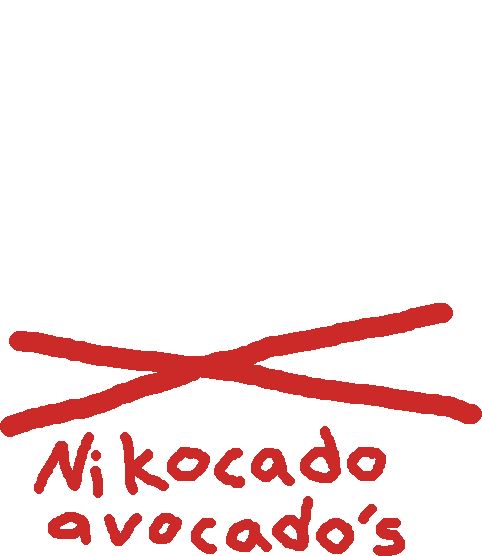 Nikocado
avocado's